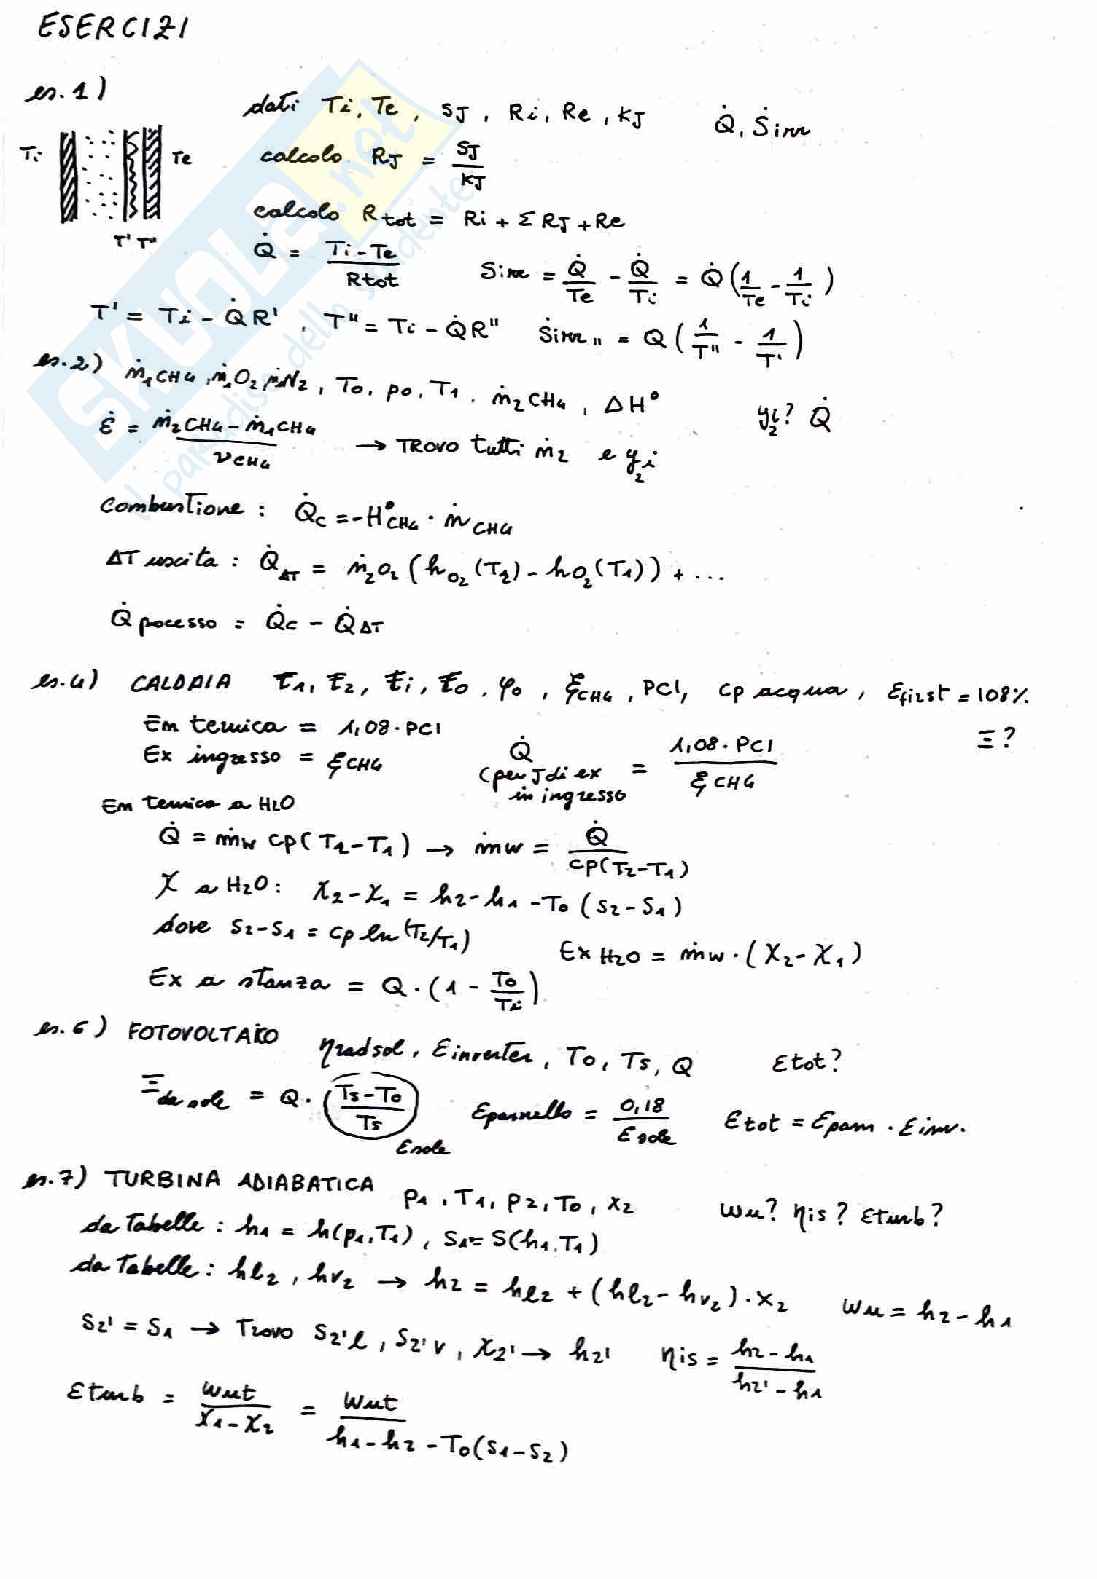 ESERCIZI
es. 1)
dati Ti, Te, sJ, Ri, Re, kJ Q̇, Ṡirr
Ti Te
calcolo RJ = sJ/kJ
calcolo Rtot = Ri + Σ RJ + Re
T' T"
Q̇ = (Ti - Te)/Rtot Ṡirr = Q̇/Te - Q̇/Ti = Q̇(1/Te - 1/Ti)
T' = Ti - Q̇R', T" = Ti - Q̇R" Ṡirr" = Q(1/T" - 1/T')
es. 2) ṁ1CH4, ṁ1O2, ṁ1N2, T0, p0, T1, ṁ2CH4, ΔH° yi2? Q̇
ε̇ = (ṁ2CH4 - ṁ1CH4)/νCH4 → TROVO tutti ṁ2 e yi2
Combustione: Q̇c = -H°CH4 · ṁCH4
ΔT uscita: Q̇ΔT = ṁ2O2 (hO2(T2) - hO2(T1)) + ...
Q̇pocesso = Q̇c - Q̇ΔT
es. 4) CALDAIA t1, t2, ti, t0, φ0, ξCH4, PCI, cp acqua, εfirst = 108% Ξ?
En temica = 1,08 · PCI
Ex ingresso = ξCH4 Q̇ (per J di ex in ingresso) = 1,08 · PCI/ξCH4
En temica a H2O
Q̇ = ṁw cp(T2 - T1) → ṁw = Q̇/cp(T2 - T1)
χ a H2O: χ2 - χ1 = h2 - h1 - T0 (s2 - s1)
dove s2 - s1 = cp ln(T2/T1) ExH2O = ṁw · (χ2 - χ1)
Ex a stanza = Q · (1 - T0/Ti)
es. 6) FOTOVOLTAICO ηradsol, εinverter, T0, Ts, Q εtot?
Ξda sole = Q · ((Ts - T0)/Ts) εsole εpannello = 0,18/εsole εtot = εpann · εinv.
es. 7) TURBINA ADIABATICA p1, T1, p2, T0, x2 wu? ηis? εturb?
da Tabelle: h1 = h(p1, T1), s1 = s(h1, T1)
da Tabelle: hl2, hv2 → h2 = hl2 + (hl2 - hv2) · x2 wu = h2 - h1
s2' = s1 → Trovo s2'l, s2'v, x2' → h2' ηis = (h2 - h1)/(h2' - h1)
εturb = wut/(χ1 - χ2) = wut/(h1 - h2 - T0(s1 - s2))
SKUOLA.net
il paradiso dello studente